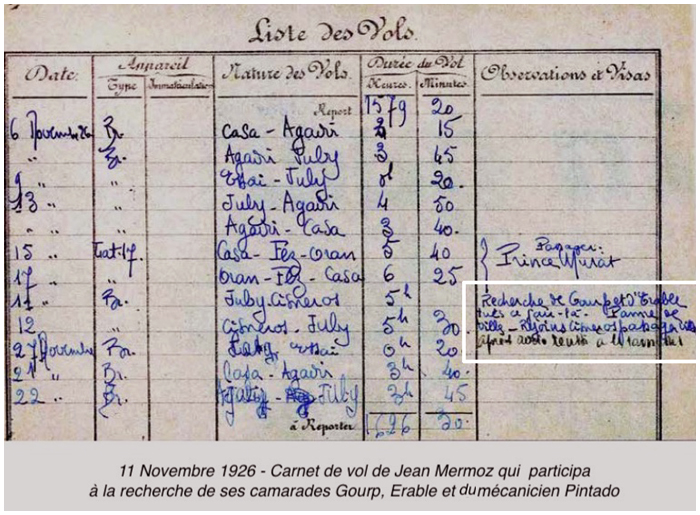 Liste des Vols.
Date. Appareil Nature des Vols. Durée du Vol Observations et Visas
Type Immatriculation Heures. Minutes
Report 1579 20
6 Novembre 26 Br. Casa - Agadir 15
" Br. Agadir Juby 3 45
9 " " Essai - Juby 20.
13 " " July - Agadir 4 50
" " " Agadir - Casa 3 40.
15 " Lat-17. Casa - Fez - Oran 5 40 Passager:
Prince Murat
17 " " Oran - Fez - Casa 6 25
11 " Br. Juby Cisneros 5h Recherche de Gourp et d'Erable
12 " Cisneros - Juby 5h 30 tués ce jour-là - Panne de
27 Novembre Br. Essai 0h 20
21 " Br. Casa - Agadir 3h 40.
22 " Br. Juby 3h 45
à Reporter 1626 30.
11 Novembre 1926 - Carnet de vol de Jean Mermoz qui participa
à la recherche de ses camarades Gourp, Erable et du mécanicien Pintado